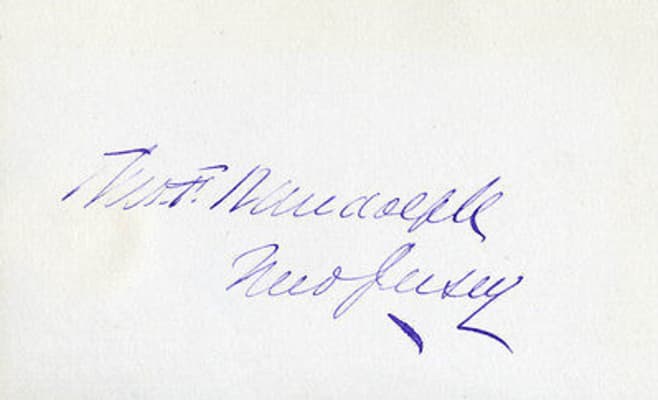 Theo. F. Randolph
New Jersey